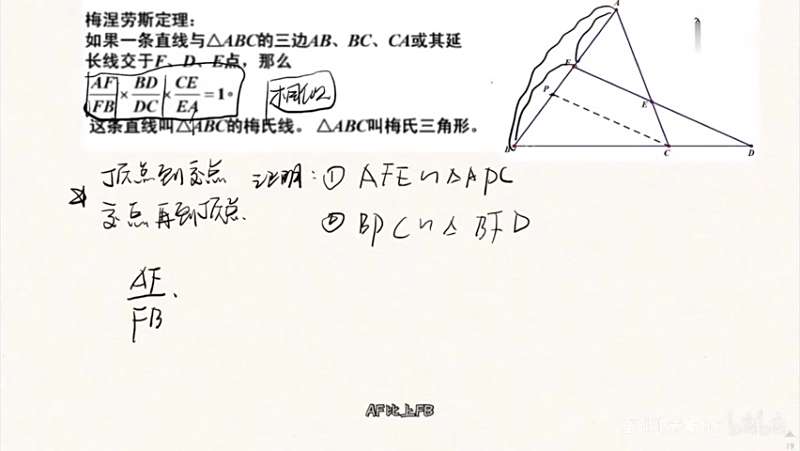 梅涅劳斯定理：
如果一条直线与△ABC的三边AB、BC、CA或其延
长线交于F、D、E点，那么
AF/FB × BD/DC × CE/EA = 1。
相似
这条直线叫△ABC的梅氏线。△ABC叫梅氏三角形。
A
F
P
E
B
C
D
顶点到交点 证明：① AFE∽△APC
交点再到顶点. ② BPC∽△BFD
AF/FB ·
AF比上FB
bilibili
19